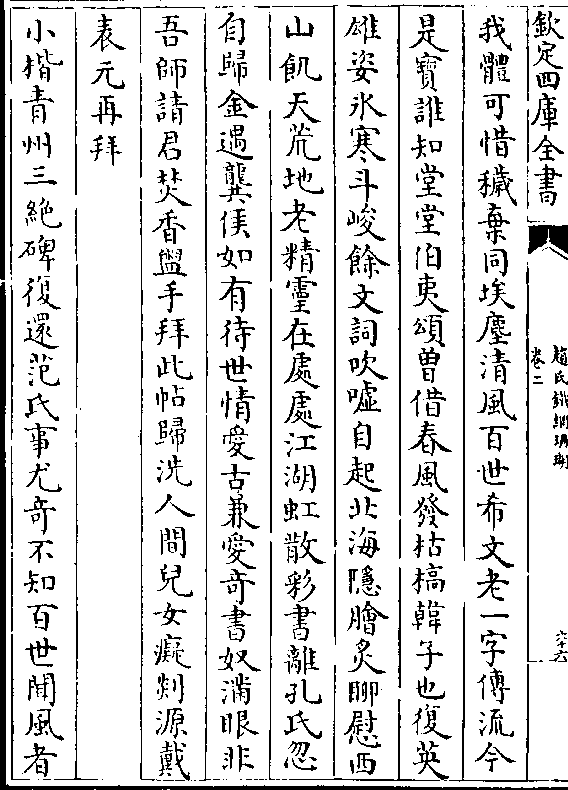 欽定四庫全書
趙氏鐵網珊瑚
卷二
六十六
我體可惜穢棄同埃塵清風百世希文老一字傳流今
是寶誰知堂堂伯夷頌曽借春風發枯槁韓子也復英
雄姿氷寒斗峻餘文詞吹噓自起北海隱膾炙聊慰西
山飢天荒地老精靈在處處江湖虹散彩書離孔氏忽
自歸金遇龔侯如有待世情愛古兼愛奇書奴滿眼非
吾師請君焚香盥手拜此帖歸洗人間兒女癡剡源戴
表元再拜
小楷青州三絶碑復還范氏事尤竒不知百世聞風者